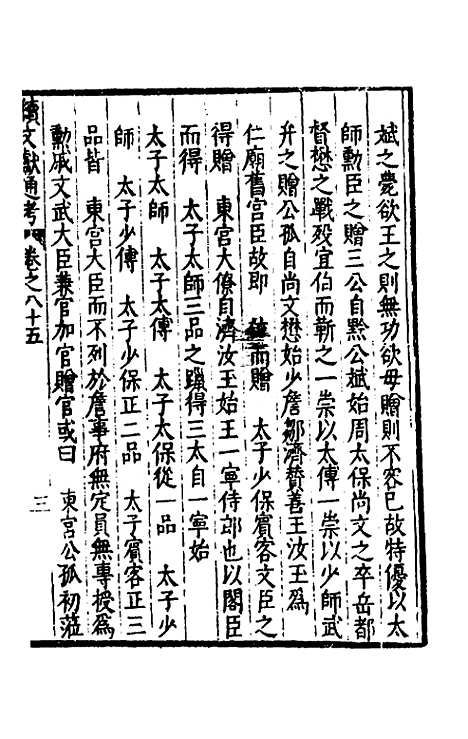 斌之薨欲王之則無功欲毋贈則不容已故特優以太
師勳臣之贈三公自黔公斌始周太保尚文之卒岳都
督懋之戰殁宜伯而靳之一崇以太傳一崇以少師武
弁之贈公孤自尚文懋始少詹鄒濟贊善王汝王爲
仁廟舊宮臣故即 而贈 太子少保賓客文臣之
得贈 東宮大僚自濟汝王始王一寧侍郎也以閣臣
而得 太子太師三品之躐得三太自一寧始
太子太師 太子太傳 太子太保從一品 太子少
師 太子少傳 太子少保正二品 太子賓客正三
品皆 東宮大臣而不列於詹事府無定員無專授爲
勳戚文武大臣兼官加官贈官或曰 東宮公孤初蒞
續文獻通考 卷之八十五 三